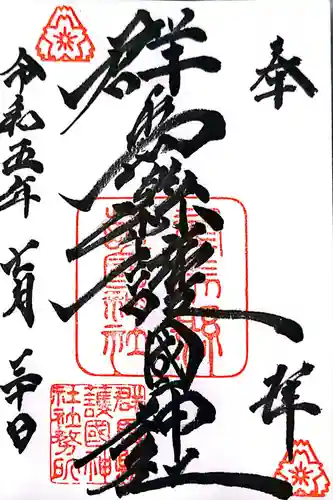 奉拝
群馬縣護國神社
令和五年
月
日
群馬縣
護國神社
群馬縣
護國神
社社務所